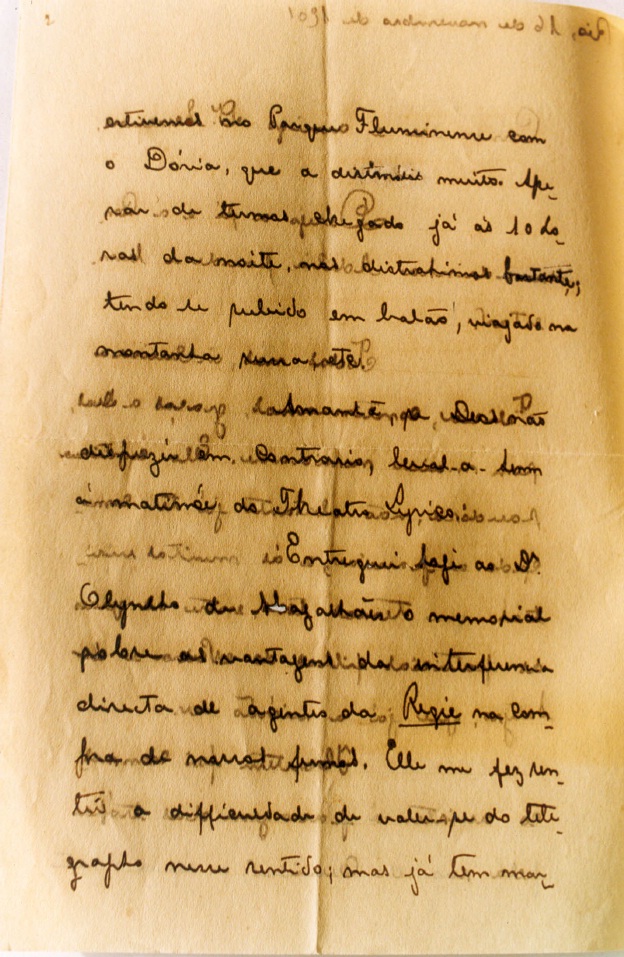 2
estivemos no Parque Fluminense com
o Dória, que a distrahiu muito. Ape-
sar de termos chegado já ás 10 ho-
ras da noite, nos distrahimos bastante,
tendo se subido em balão, viajado na
montanha russa etc.
Amanhã, se Deus não
dispuzer em contrario, leval-a-hei
á matinée do Theatro Lyrico.
Entreguei hoje ao Dr.
Olyntho de Magalhães o memorial
sobre as vantagens da interferencia
directa de agentes da Regie na com-
pra de nossos fumos. Elle me fez sen-
tir a difficuldade de valer-se do tele-
grapho nesse sentido; mas já tem man-